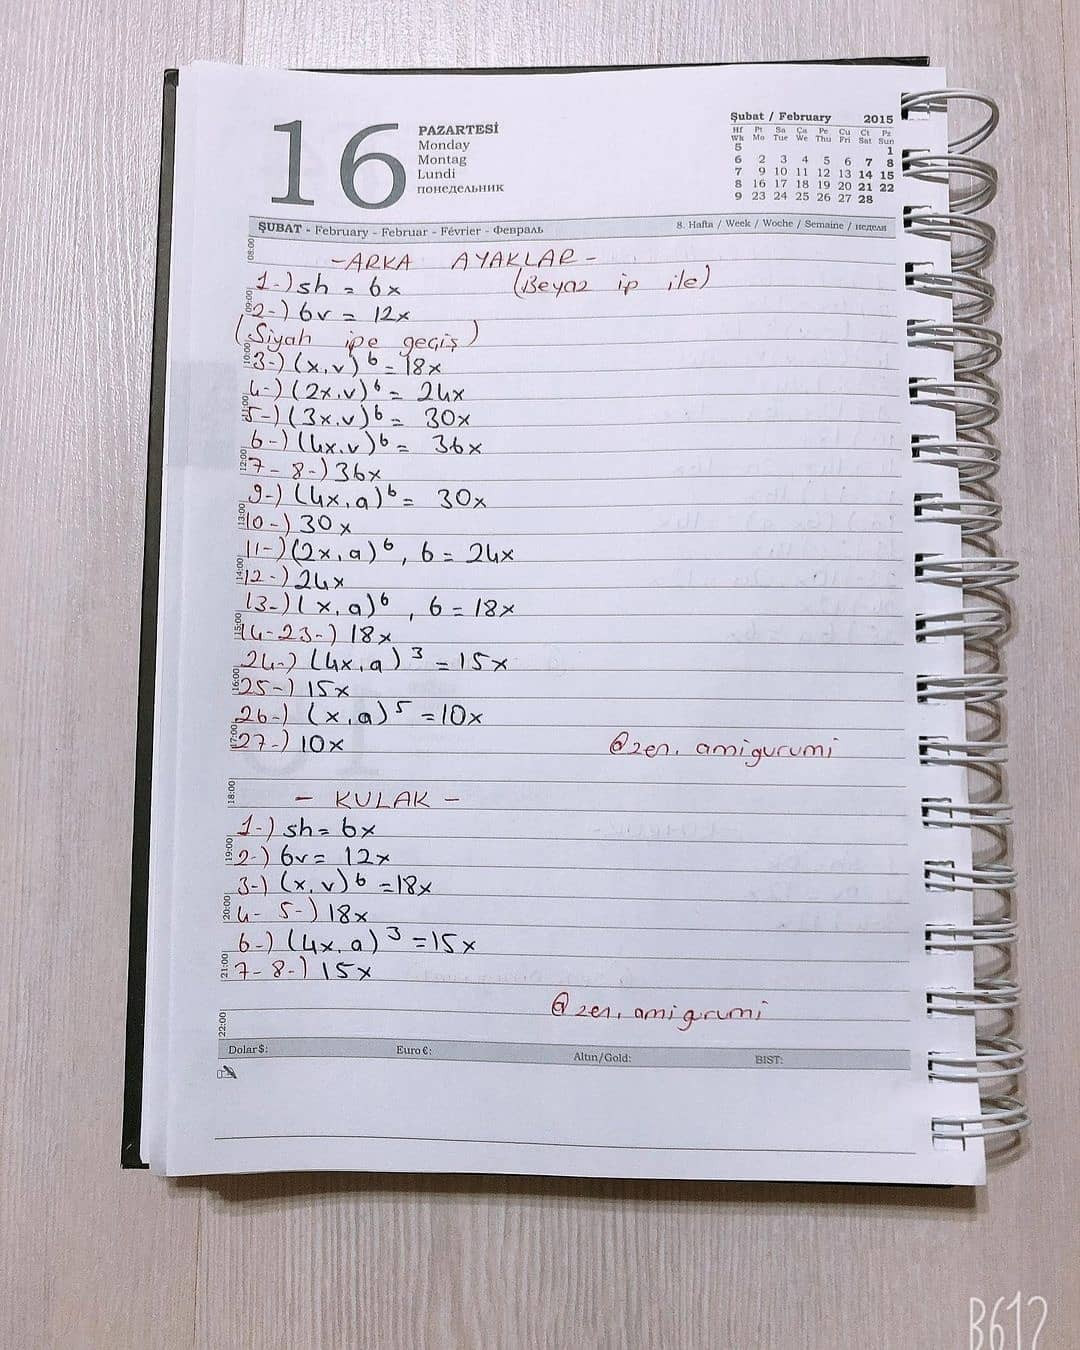 16
PAZARTESİ
Monday
Montag
Lundi
понедельник
Şubat / February 2015
Hf Pt Sa Ça Pe Cu Ct Pz
Wk Mo Tue We Thu Fri Sat Sun
5 1
6 2 3 4 5 6 7 8
7 9 10 11 12 13 14 15
8 16 17 18 19 20 21 22
9 23 24 25 26 27 28
ŞUBAT - February - Februar - Février - Февраль
8. Hafta / Week / Woche / Semaine / неделя
08:00
- ARKA AYAKLAR -
1-) sh = 6x (Beyaz ip ile)
09:00
2-) 6v = 12x
(Siyah ipe geçiş)
10:00
3-) (x,v)6 = 18x
4-) (2x,v)6 = 24x
11:00
5-) (3x,v)6 = 30x
6-) (4x,v)6 = 36x
12:00
7-8-) 36x
9-) (4x,a)6 = 30x
13:00
10-) 30x
11-) (2x,a)6, 6 = 24x
14:00
12-) 24x
13-) (x,a)6, 6 = 18x
15:00
14-23-) 18x
24-) (4x,a)3 = 15x
16:00
25-) 15x
26-) (x,a)5 = 10x
17:00
27-) 10x @zen.amigurumi
18:00
- KULAK -
1-) sh = 6x
19:00
2-) 6v = 12x
3-) (x,v)6 = 18x
20:00
4-5-) 18x
6-) (4x,a)3 = 15x
21:00
7-8-) 15x
@zen.amigurumi
22:00
Dolar $: Euro €: Altın/Gold: BIST:
B612